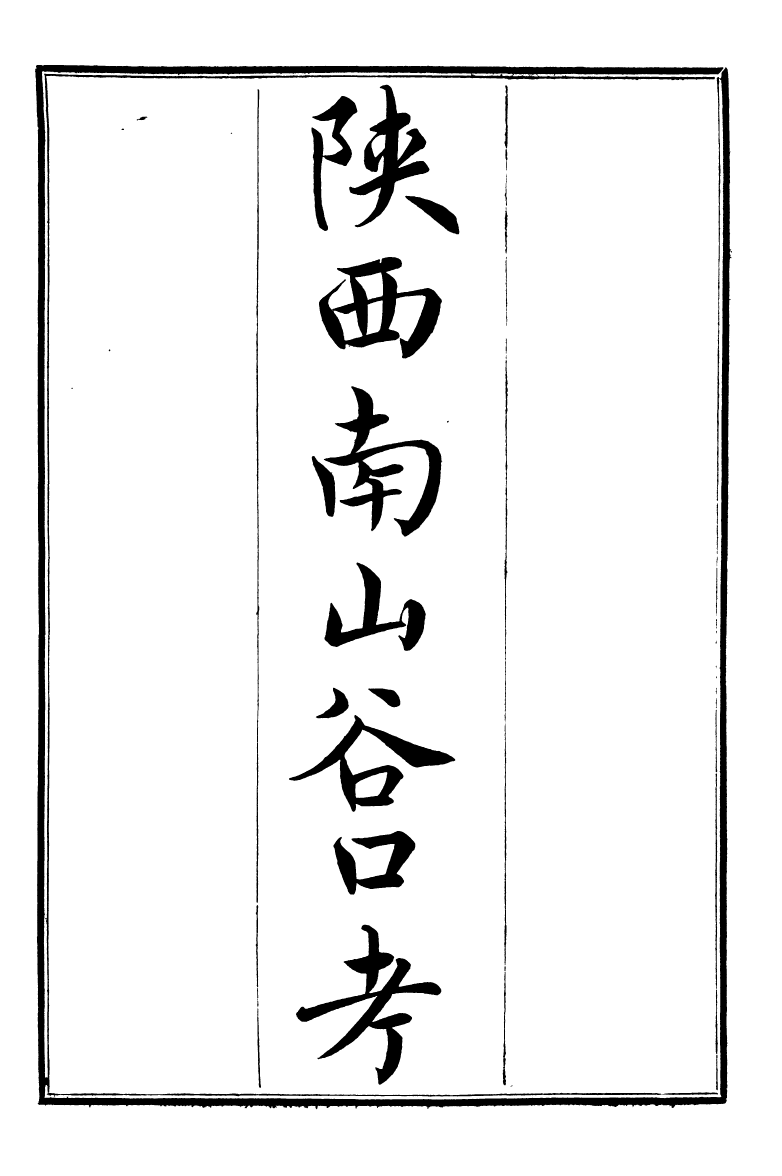 陜西南山谷口考